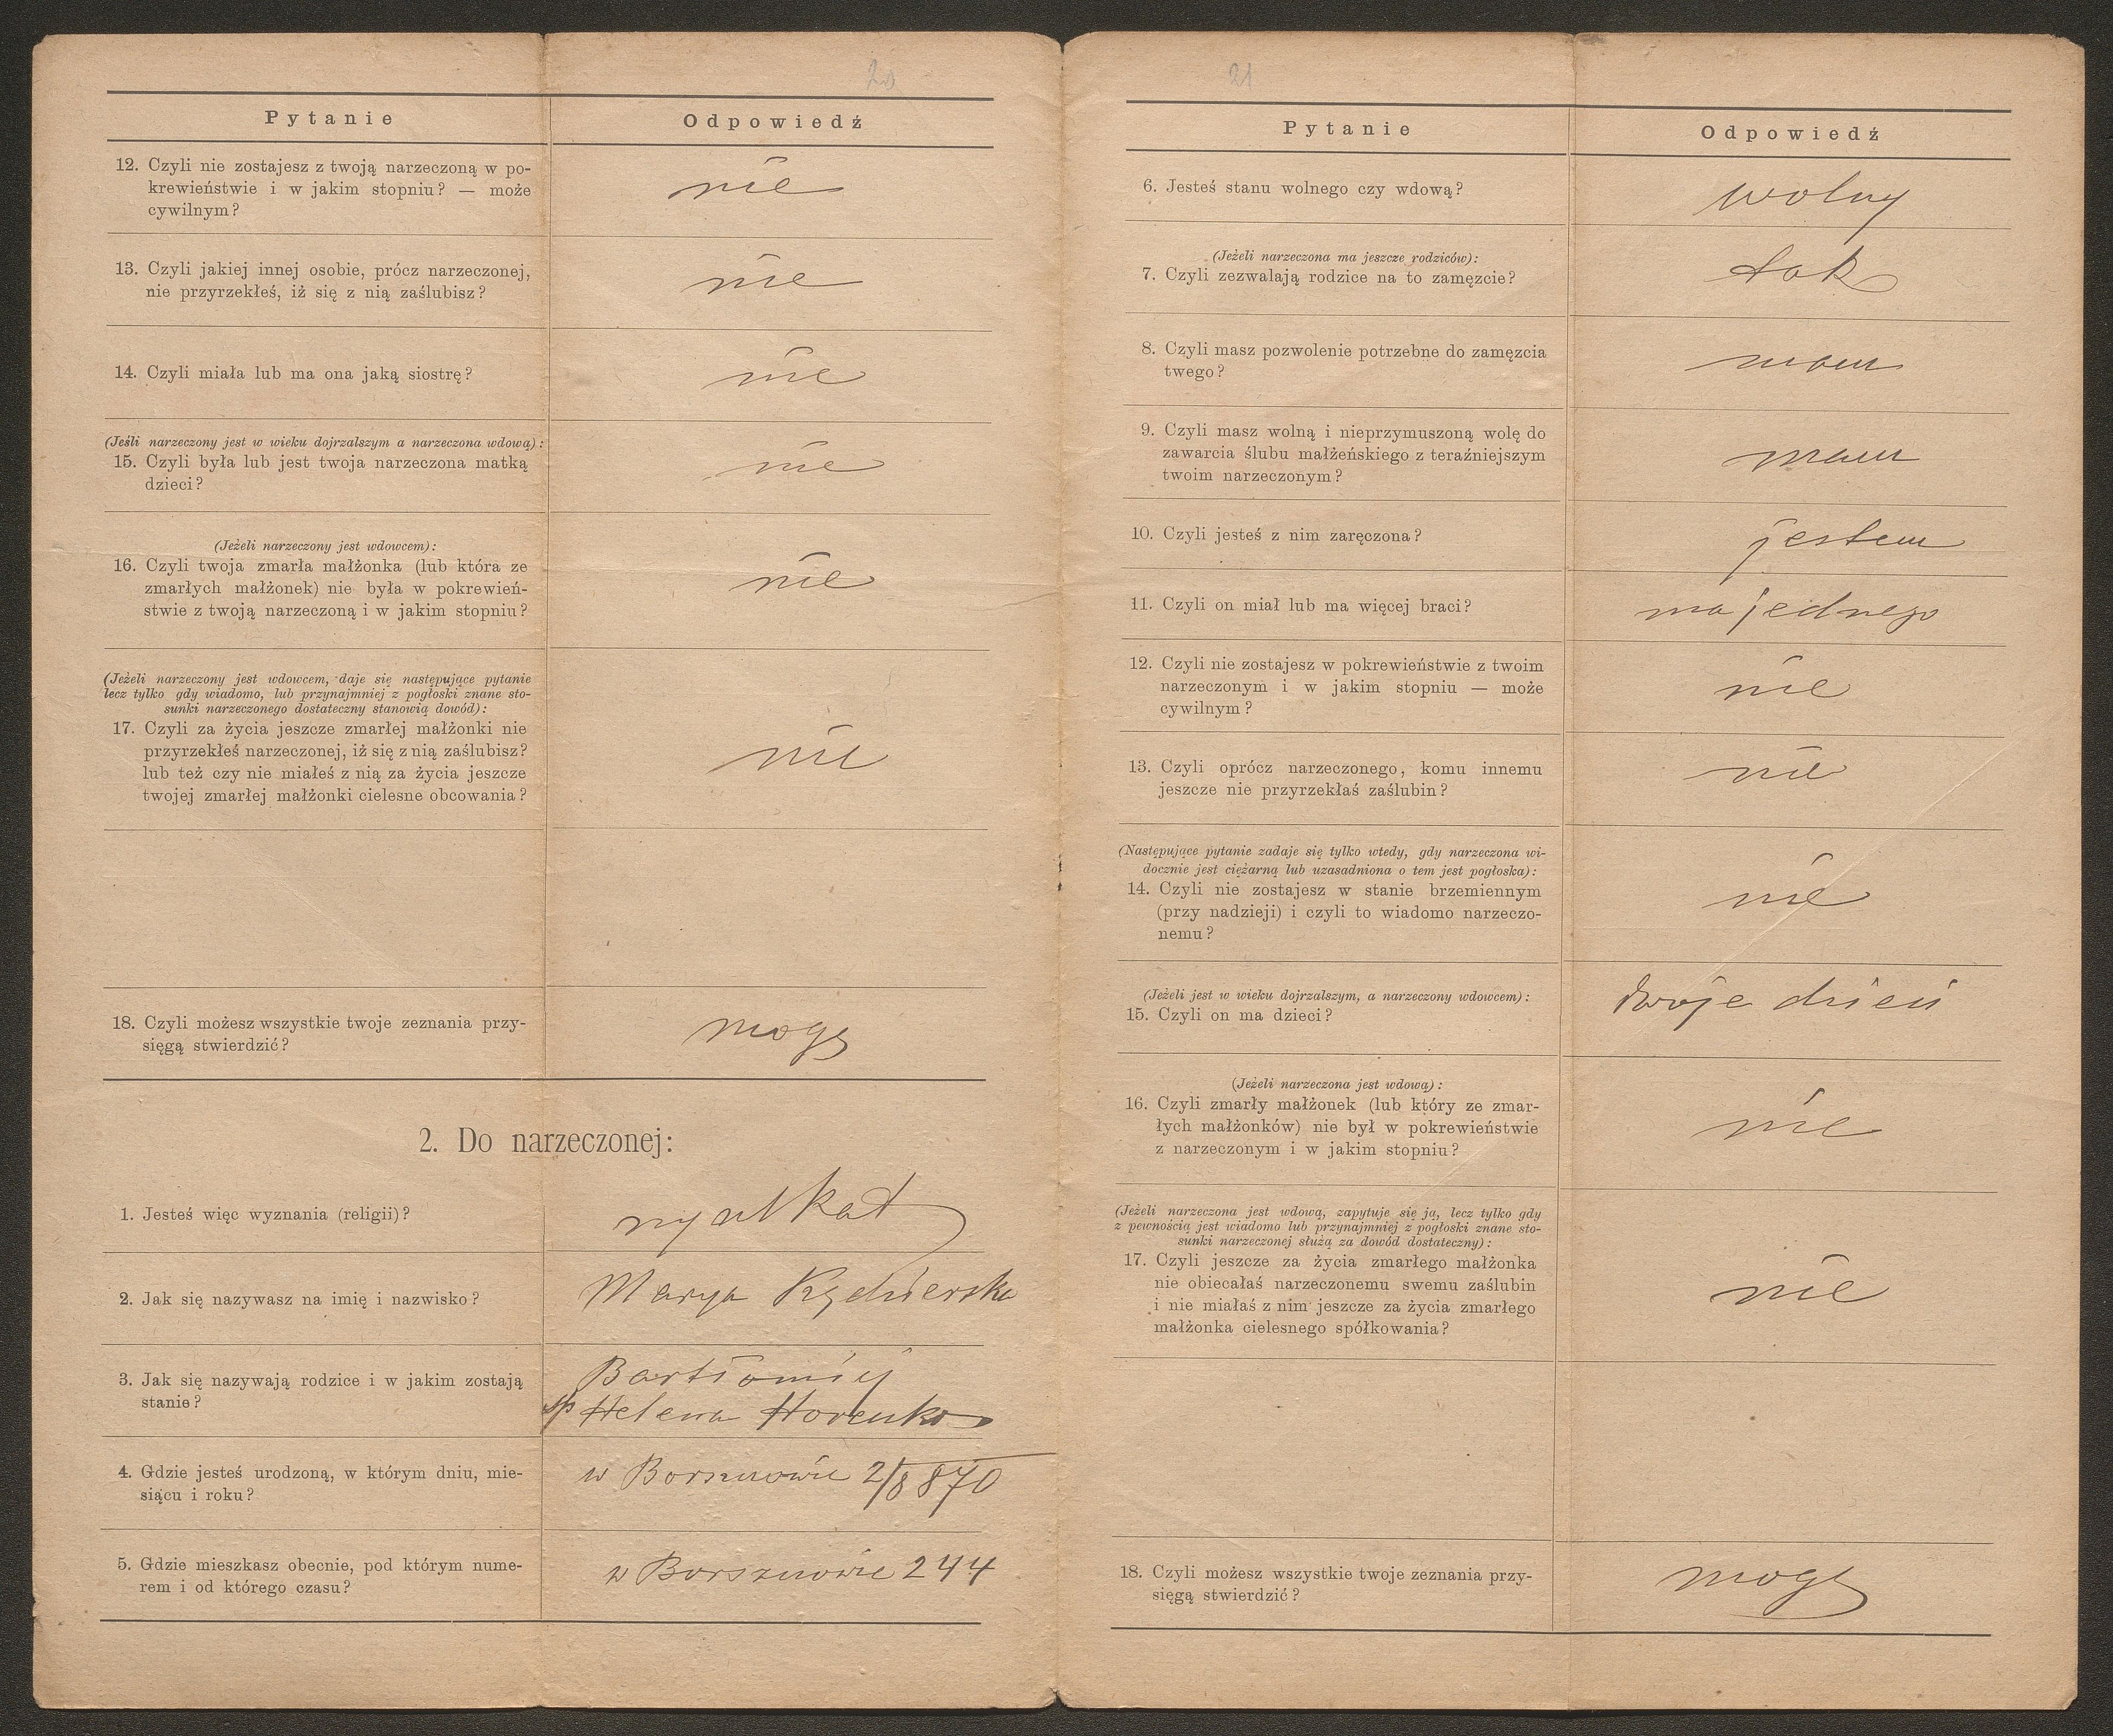 20
Pytanie
Odpowiedź
12. Czyli nie zostajesz z twoją narzeczoną w po-
krewieństwie i w jakim stopniu? — może
cywilnym?
nie
13. Czyli jakiej innej osobie, prócz narzeczonej,
nie przyrzekłeś, iż się z nią zaślubisz?
nie
14. Czyli miała lub ma ona jaką siostrę?
nie
(Jeśli narzeczony jest w wieku dojrzalszym a narzeczona wdową):
15. Czyli była lub jest twoja narzeczona matką
dzieci?
nie
(Jeżeli narzeczony jest wdowcem):
16. Czyli twoja zmarła małżonka (lub która ze
zmarłych małżonek) nie była w pokrewień-
stwie z twoją narzeczoną i w jakim stopniu?
nie
(Jeżeli narzeczony jest wdowcem, daje się następujące pytanie
lecz tylko gdy wiadomo, lub przynajmniej z pogłoski znane sto-
sunki narzeczonego dostateczny stanowią dowód):
17. Czyli za życia jeszcze zmarłej małżonki nie
przyrzekłeś narzeczonej, iż się z nią zaślubisz?
lub też czy nie miałeś z nią za życia jeszcze
twojej zmarłej małżonki cielesne obcowania?
nie
18. Czyli możesz wszystkie twoje zeznania przy-
sięgą stwierdzić?
mogę
2. Do narzeczonej:
1. Jesteś więc wyznania (religii)?
2. Jak się nazywasz na imię i nazwisko?
Marya
3. Jak się nazywają rodzice i w jakim zostają
stanie?
Bartłomiej
sp Helena
4. Gdzie jesteś urodzoną, w którym dniu, mie-
siącu i roku?
w 2/8 870
5. Gdzie mieszkasz obecnie, pod którym nume-
rem i od którego czasu?
w 244
21
Pytanie
Odpowiedź
6. Jesteś stanu wolnego czy wdową?
wolny
(Jeżeli narzeczona ma jeszcze rodziców):
7. Czyli zezwalają rodzice na to zamęzcie?
tak
8. Czyli masz pozwolenie potrzebne do zamęzcia
twego?
mam
9. Czyli masz wolną i nieprzymuszoną wolę do
zawarcia ślubu małżeńskiego z teraźniejszym
twoim narzeczonym?
mam
10. Czyli jesteś z nim zaręczona?
jestem
11. Czyli on miał lub ma więcej braci?
ma jednego
12. Czyli nie zostajesz w pokrewieństwie z twoim
narzeczonym i w jakim stopniu — może
cywilnym?
nie
13. Czyli oprócz narzeczonego, komu innemu
jeszcze nie przyrzekłaś zaślubin?
nie
(Następujące pytanie zadaje się tylko wtedy, gdy narzeczona wi-
docznie jest ciężarną lub uzasadniona o tem jest pogłoska):
14. Czyli nie zostajesz w stanie brzemiennym
(przy nadzieji) i czyli to wiadomo narzeczo-
nemu?
nie
(Jeżeli jest w wieku dojrzalszym, a narzeczony wdowcem):
15. Czyli on ma dzieci?
dwoje dzieci
(Jeżeli narzeczona jest wdową):
16. Czyli zmarły małżonek (lub który ze zmar-
łych małżonków) nie był w pokrewieństwie
z narzeczonym i w jakim stopniu?
nie
(Jeżeli narzeczona jest wdową, zapytuje się ją, lecz tylko gdy
z pewnością jest wiadomo lub przynajmniej z pogłoski znane sto-
sunki narzeczonej służą za dowód dostateczny):
17. Czyli jeszcze za życia zmarłego małżonka
nie obiecałaś narzeczonemu swemu zaślubin
i nie miałaś z nim jeszcze za życia zmarłego
małżonka cielesnego spółkowania?
nie
18. Czyli możesz wszystkie twoje zeznania przy-
sięgą stwierdzić?
mogę